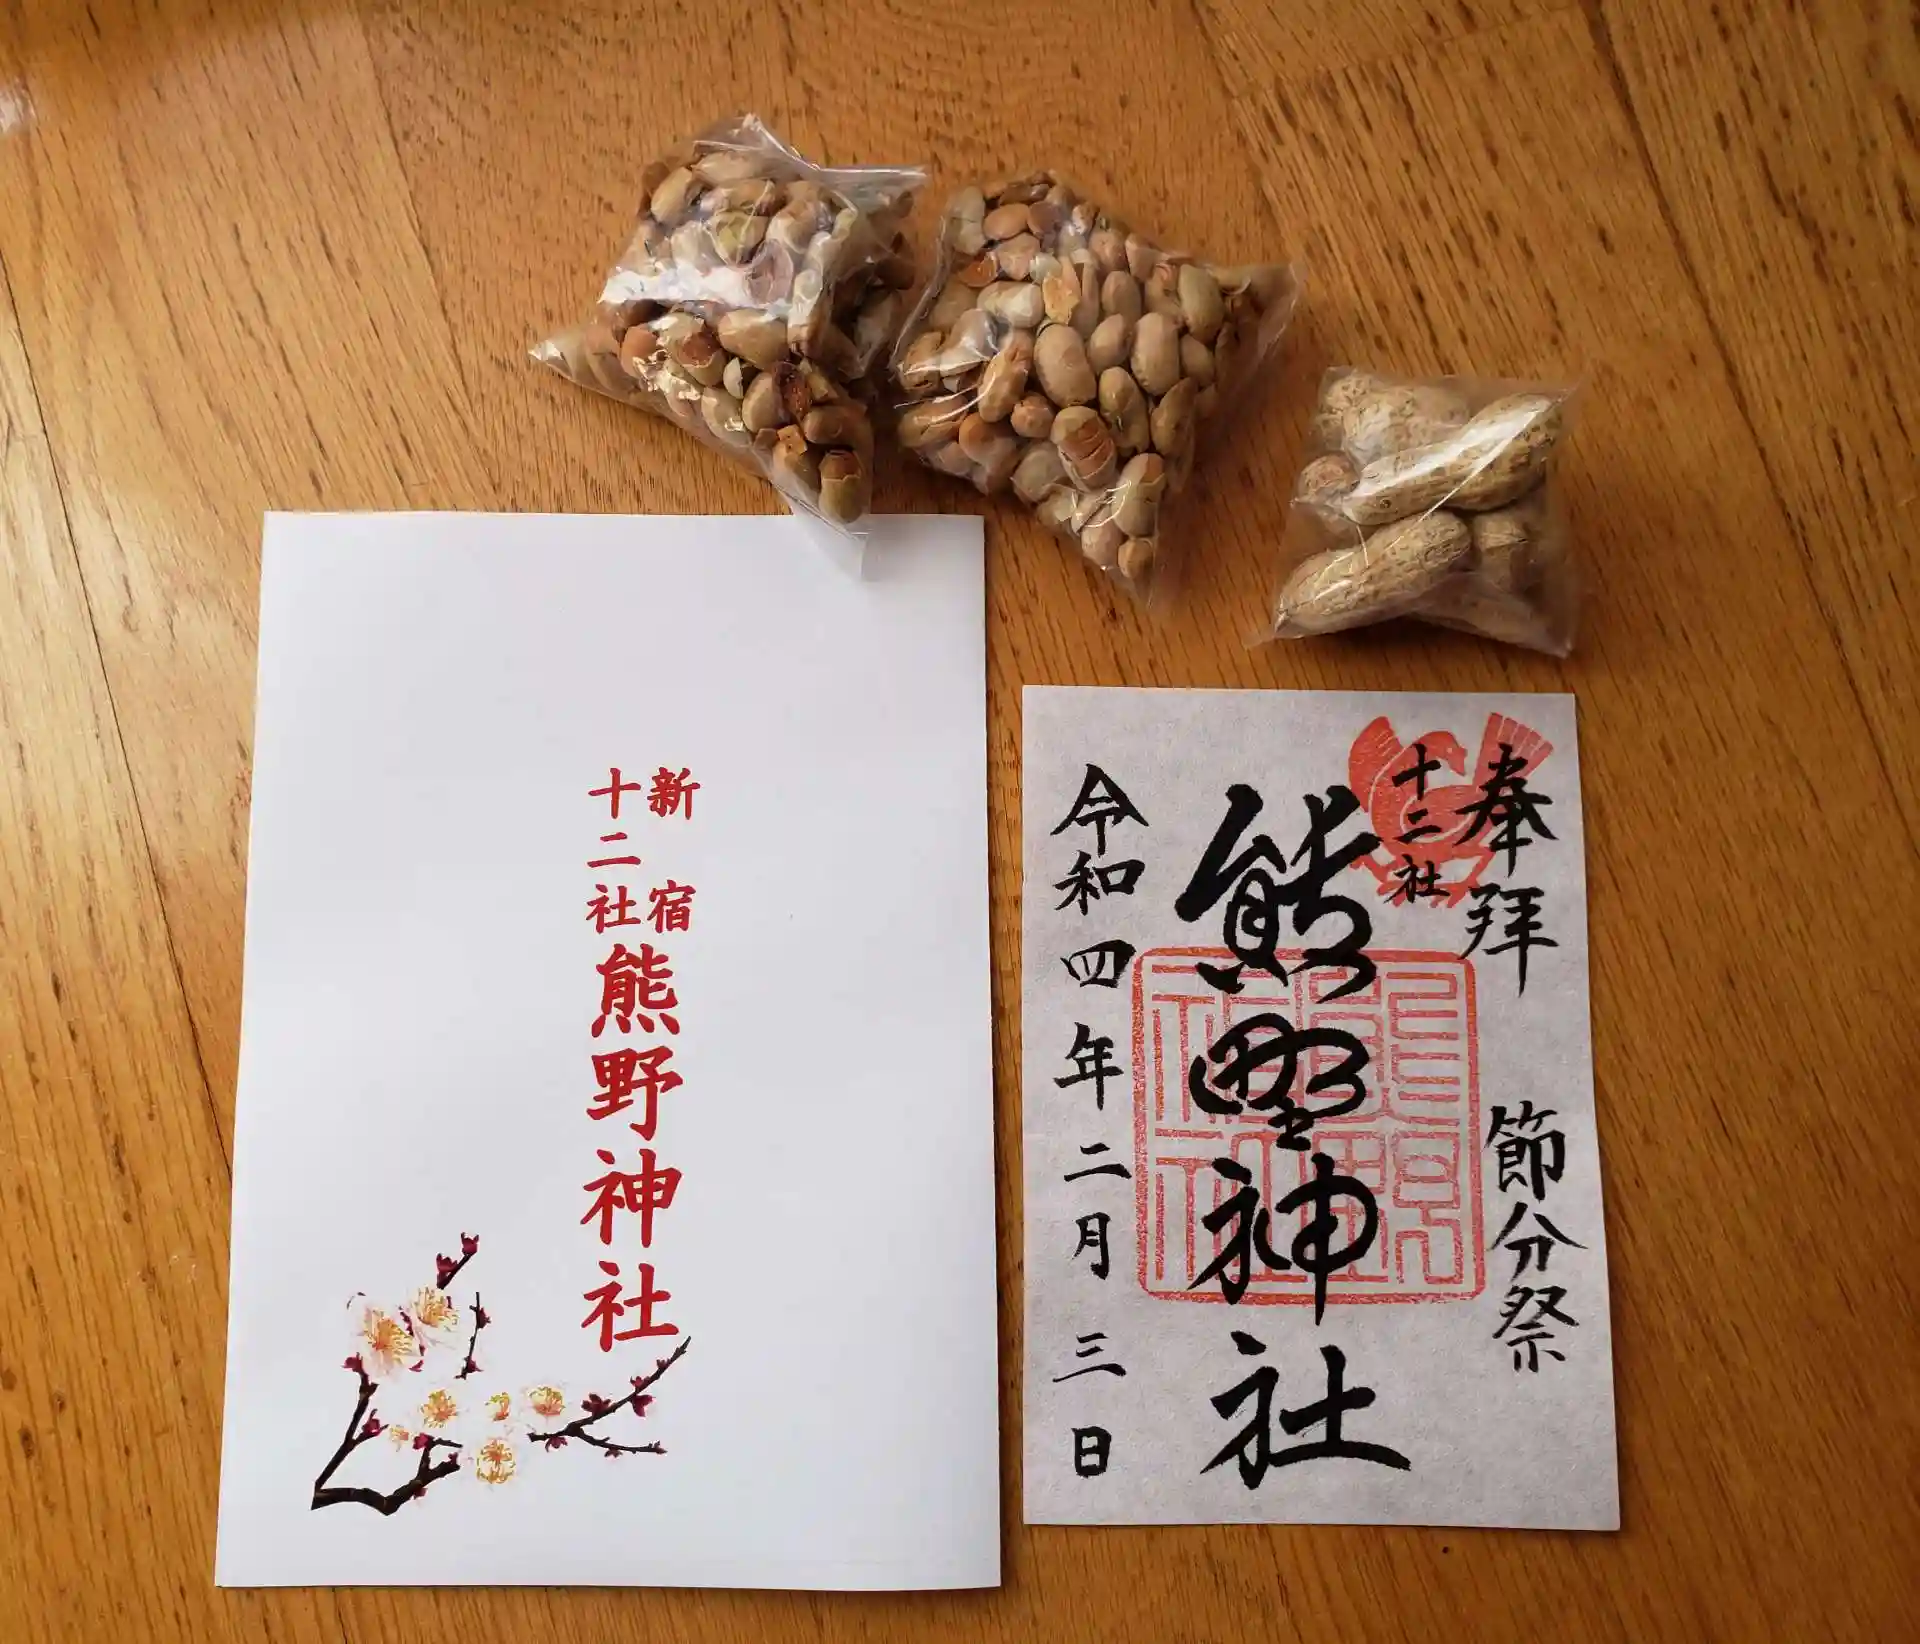 新宿
十二社
熊野神社
奉拝 節分祭
十二社
熊野神社
令和四年二月三日